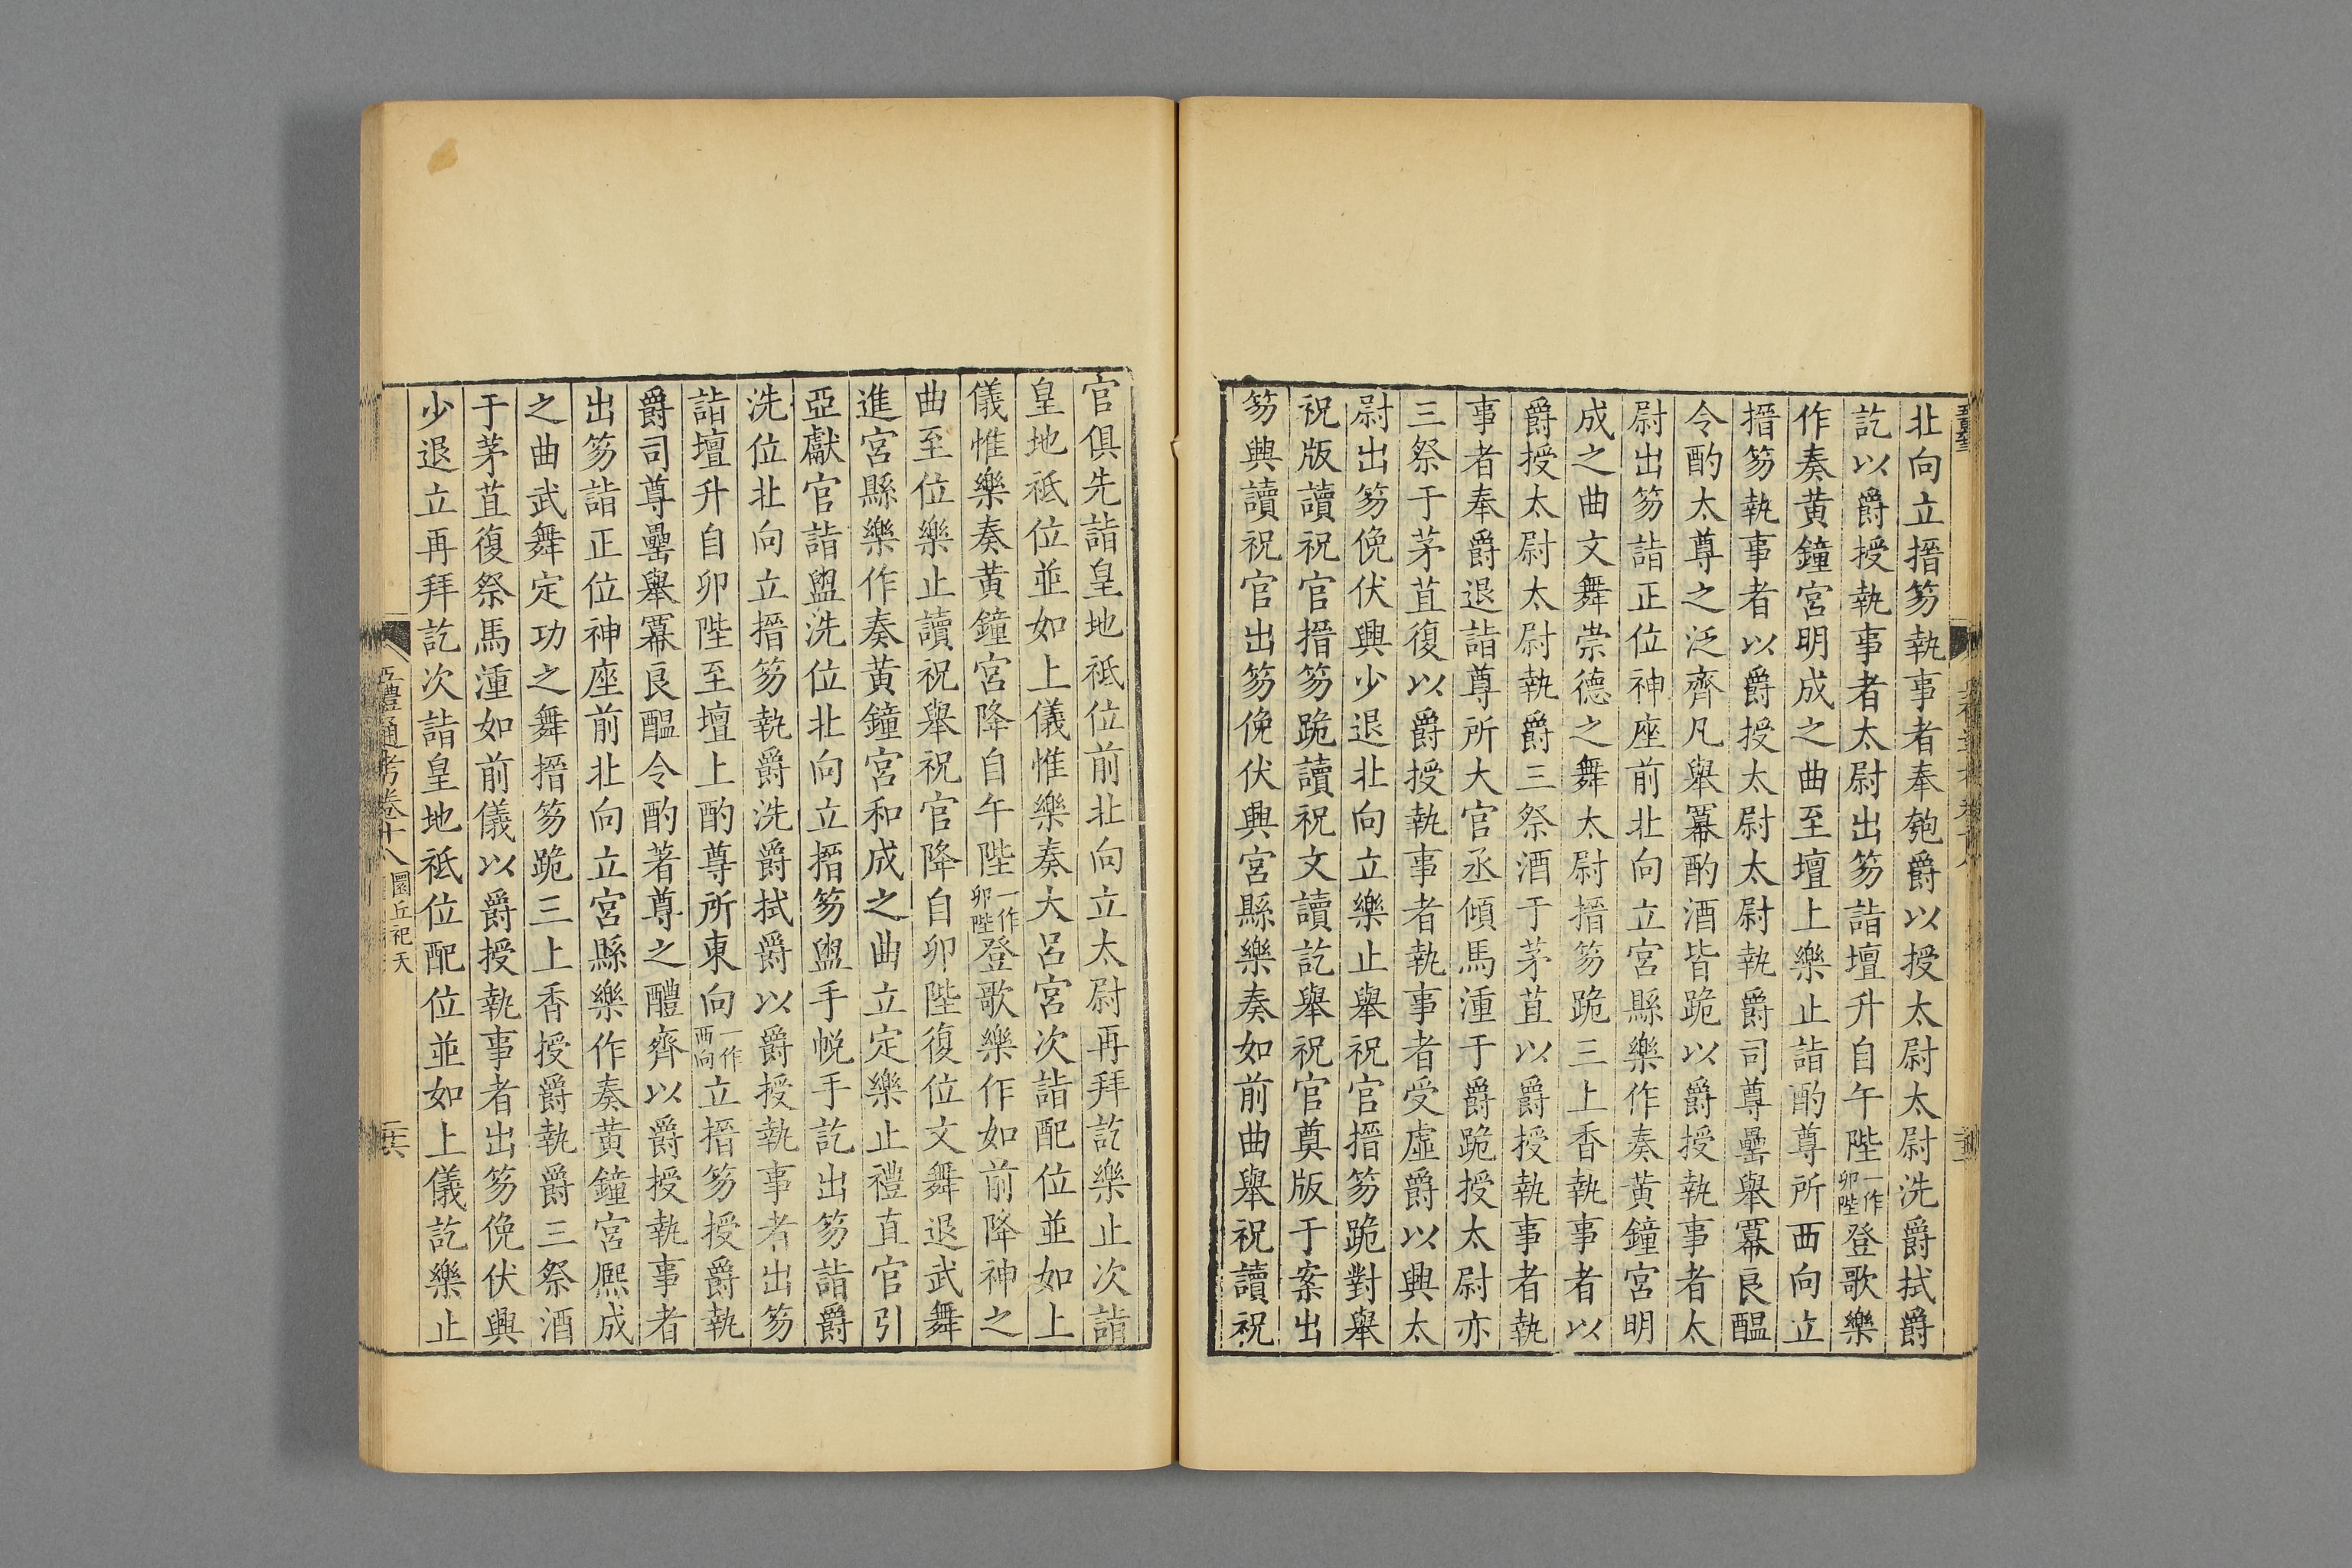 北向立搢笏執事者奉匏爵以授太尉太尉洗爵拭爵
訖以爵授執事者太尉出笏詣壇升自午陛一作卯陛登歌樂
作奏黄鐘宮明成之曲至壇上樂止詣酌尊所西向立
搢笏執事者以爵授太尉太尉執爵司尊罍舉冪良醖
令酌太尊之泛齊凡舉冪酌酒皆跪以爵授執事者太
尉出笏詣正位神座前北向立宮縣樂作奏黄鐘宮明
成之曲文舞崇德之舞太尉搢笏跪三上香執事者以
爵授太尉太尉執爵三祭酒于茅苴以爵授執事者執
事者奉爵退詣尊所大官丞傾馬湩于爵跪授太尉亦
三祭于茅苴復以爵授執事者執事者受虛爵以興太
尉出笏俛伏興少退北向立樂止舉祝官搢笏跪對舉
祝版讀祝官搢笏跪讀祝文讀訖舉祝官奠版于案出
笏興讀祝官出笏俛伏興宮縣樂奏如前曲舉祝讀祝
官俱先詣皇地祇位前北向立太尉再拜訖樂止次詣
皇地祇位並如上儀惟樂奏大呂宮次詣配位並如上
儀惟樂奏黄鐘宮降自午陛一作卯陛登歌樂作如前降神之
曲至位樂止讀祝舉祝官降自卯陛復位文舞退武舞
進宮縣樂作奏黄鐘宮和成之曲立定樂止禮直官引
亞獻官詣盥洗位北向立搢笏盥手帨手訖出笏詣爵
洗位北向立搢笏執爵洗爵拭爵以爵授執事者出笏
詣壇升自卯陛至壇上酌尊所東向一作西向立搢笏授爵執
爵司尊罍舉冪良醖令酌著尊之醴齊以爵授執事者
出笏詣正位神座前北向立宮縣樂作奏黄鐘宮熙成
之曲武舞定功之舞搢笏跪三上香授爵執爵三祭酒
于茅苴復祭馬湩如前儀以爵授執事者出笏俛伏興
少退立再拜訖次詣皇地祇位配位並如上儀訖樂止
五禮通考卷十八圜丘祀天